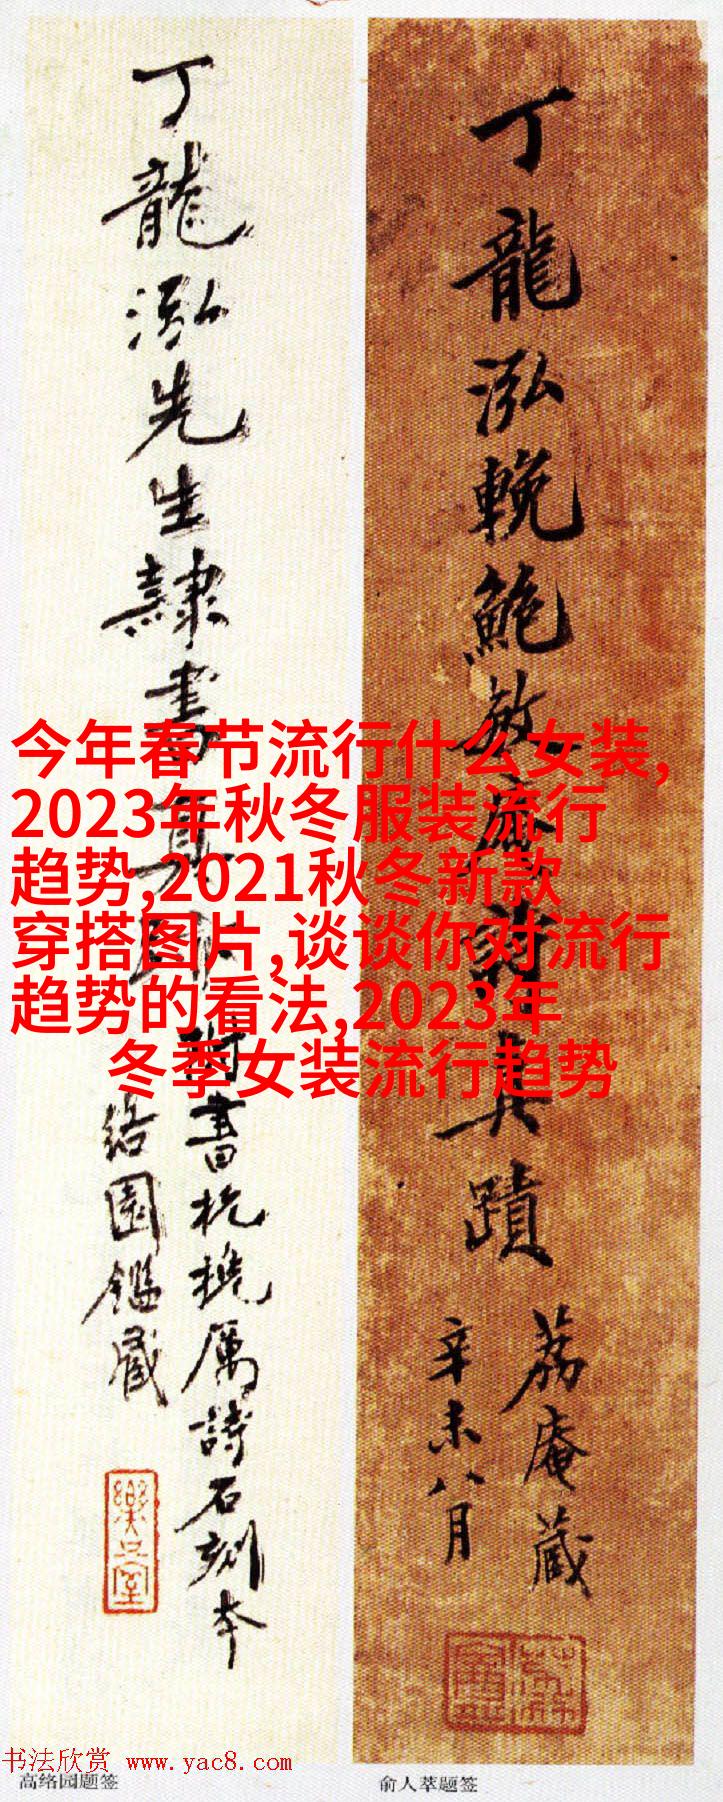 丁龍泓先生隸書真
附書杭撓厲詩石刻本
絡園鑑藏
丁龍泓輓鮑敘齋詩真蹟
荔庵藏
辛未八月
今年春节流行什么女装,
2023年秋冬服装流行
趋势,2021秋冬新款
穿搭图片,谈谈你对流行
趋势的看法,2023年
冬季女装流行趋势
书法欣赏 www.yac8.com
高络园题签
俞人萃题签